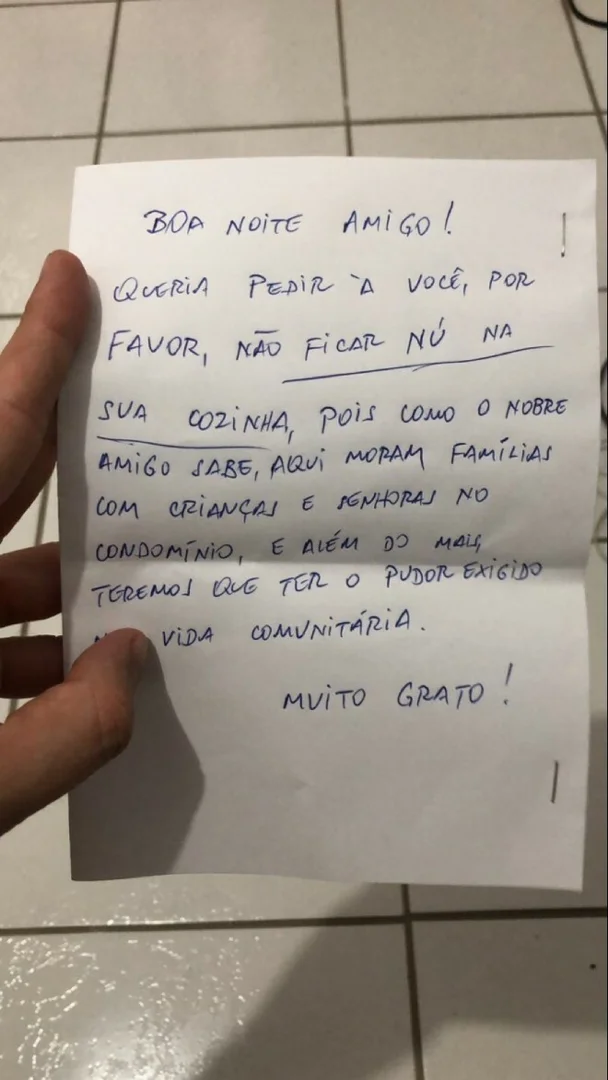 BOA NOITE AMIGO!
QUERIA PEDIR À VOCÊ, POR
FAVOR, NÃO FICAR NÚ NA
SUA COZINHA, POIS COMO O NOBRE
AMIGO SABE, AQUI MORAM FAMÍLIAS
COM CRIANÇAS E SENHORAS NO
CONDOMÍNIO, E ALÉM DO MAIS,
TEREMOS QUE TER O PUDOR EXIGIDO
VIDA COMUNITÁRIA.
MUITO GRATO!